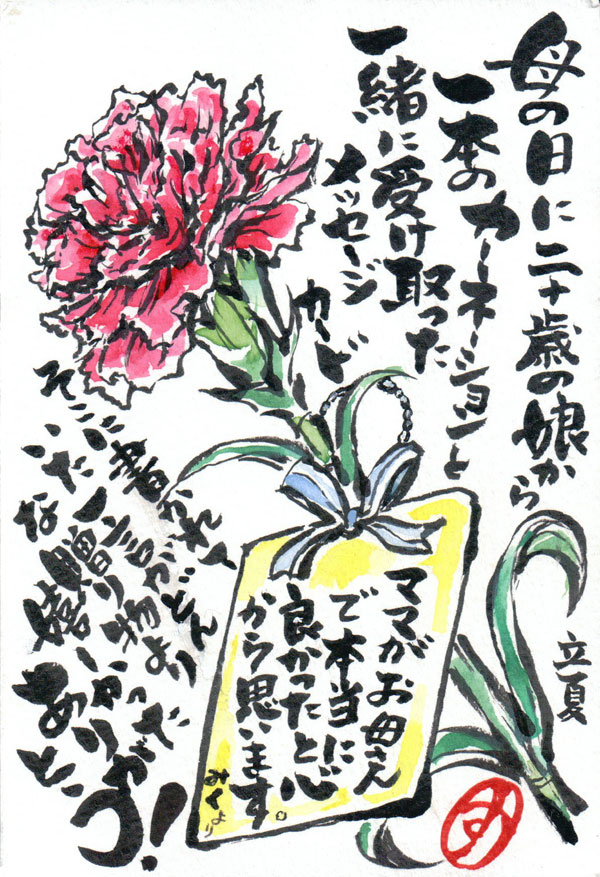 母の日に二十歳の娘から
一本のカーネーションと
一緒に受け取った
メッセージ
カード
そこに書かれて
いた一言がどん
な贈り物より
嬉しかったぜ
ありがとう!
ママがお母さん
で本当に
良かったと心
から思います。
みくより
立夏
す